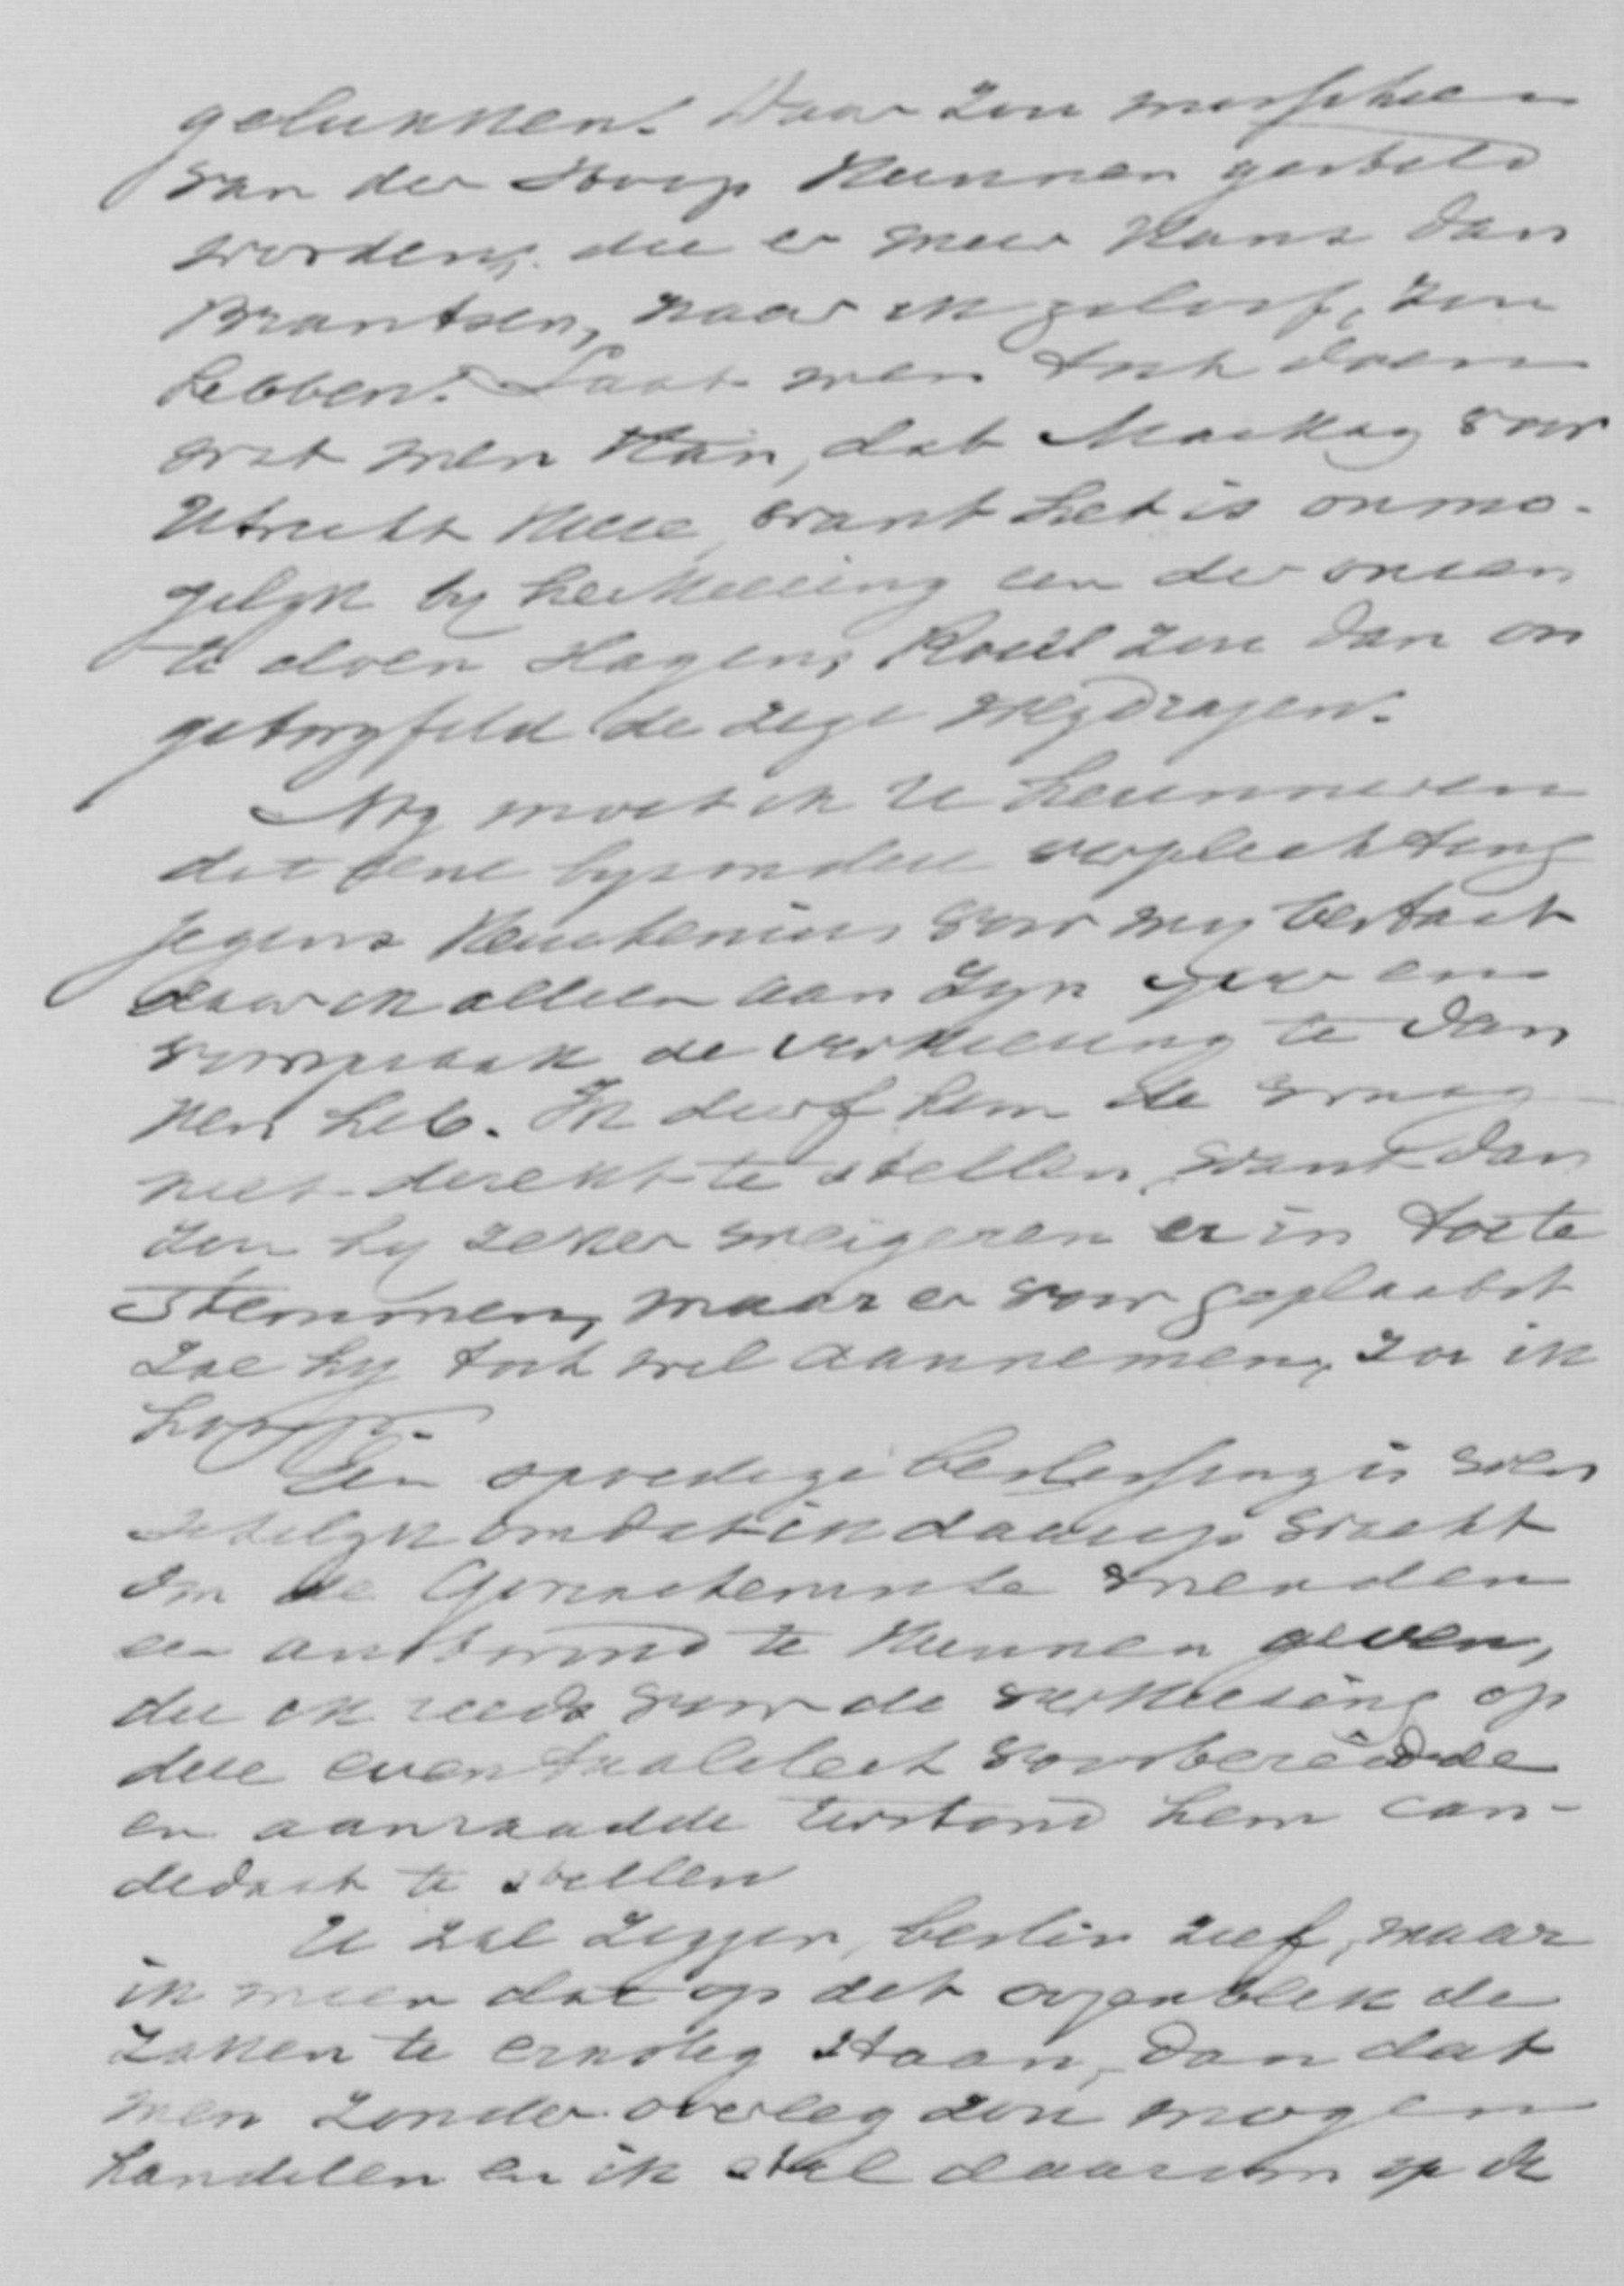 gelukken. Daar zou misschien
van der Hoop kunnen gesteld
worden, die er meer kans dan
Brantsen, naar ik geloof, zou
hebben. Laat men toch doen
wat men kan, dat Mackay voor
Utrecht kieze, want het is onmo-
gelyk by herkiezing een der onzen
te doen slagen, Roëll zou dan on
getwyfeld de zege wegdragen.
Nog moet ik U herinneren
dat eene byzondere verplichting
jegens Keuchenius voor my bestaat
daar ik alleen aan zyn yver en
voorspraak de verkiezing te dan
ken heb. Ik durf hem de vraag
niet direkt te stellen, want dan
zou hy zeker weigeren er in toe te
stemmen, maar er voor geplaatst
zal hy toch wel aannemen, zoo ik
hoop.
Een spoedige beslissing is wen
schelyk omdat ik daarop wacht
om de Gorinchemsche vrienden
een antwoord te kunnen geven,
die ik reeds voor de verkiezing op
deze eventualiteit voorbereidde
en aanraadde terstond hem can-
didaat te stellen
U zal zeggen, beslis zelf, maar
ik meen dat op dit oogenblik de
zaken te ernstig staan, dan dat
men zonder overleg zou mogen
handelen en ik stel daarom op de